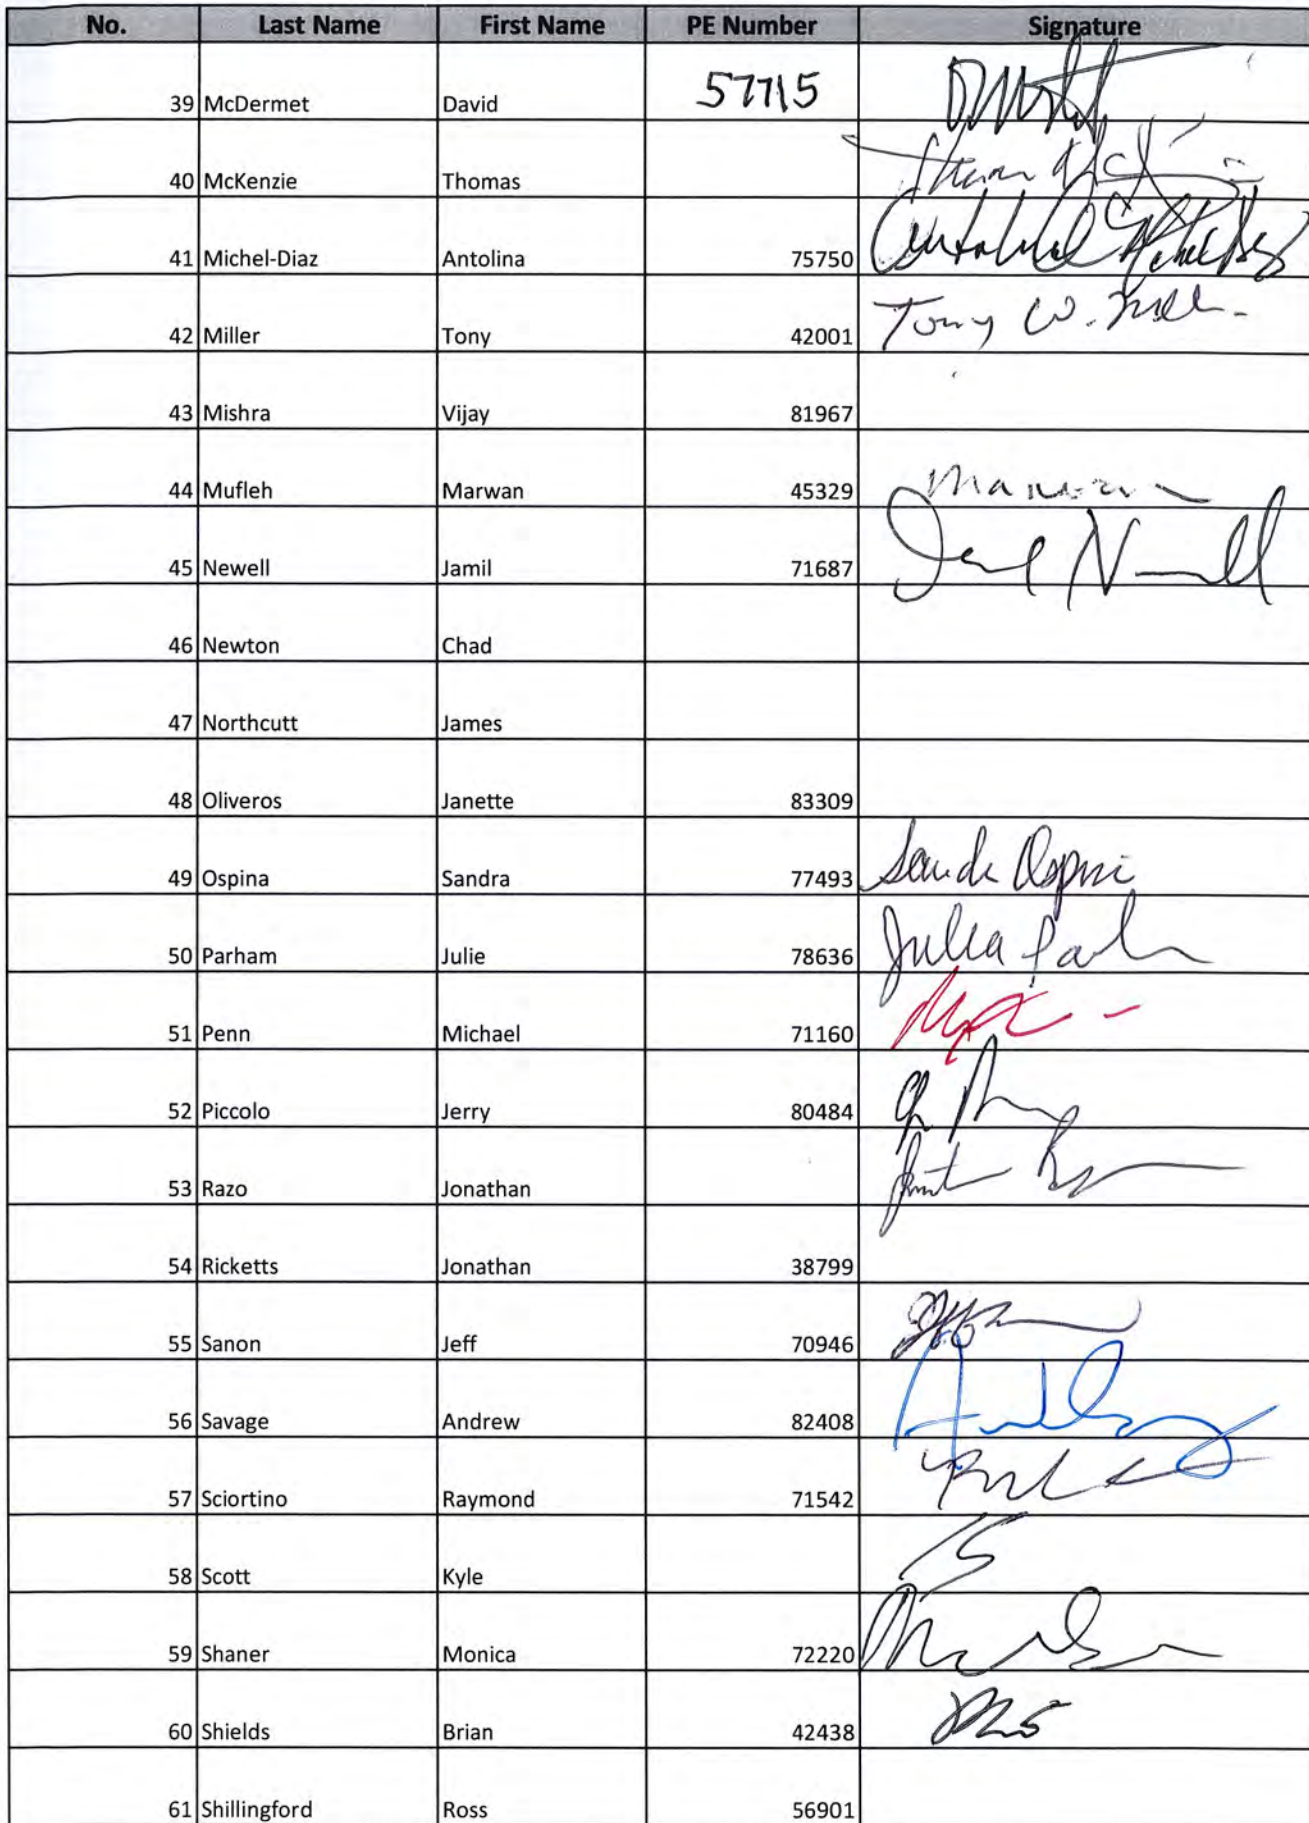 No. Last Name First Name PE Number Signature
39 McDermet David 57715
40 McKenzie Thomas
41 Michel-Diaz Antolina 75750
42 Miller Tony 42001 Tony W.
43 Mishra Vijay 81967
44 Mufleh Marwan 45329 Marwan
45 Newell Jamil 71687
46 Newton Chad
47 Northcutt James
48 Oliveros Janette 83309
49 Ospina Sandra 77493
50 Parham Julie 78636
51 Penn Michael 71160
52 Piccolo Jerry 80484
53 Razo Jonathan
54 Ricketts Jonathan 38799
55 Sanon Jeff 70946
56 Savage Andrew 82408
57 Sciortino Raymond 71542
58 Scott Kyle
59 Shaner Monica 72220
60 Shields Brian 42438
61 Shillingford Ross 56901